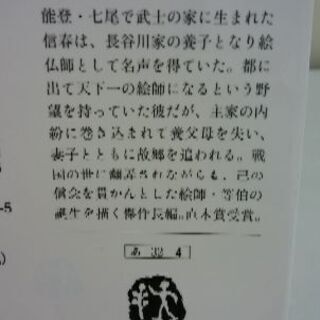 能登・七尾で武士の家に生まれた
信春は、長谷川家の養子となり絵
仏師として名声を得ていた。都に
出て天下一の絵師になるという野
望を持っていた彼だが、主家の内
紛に巻き込まれて養父母を失い、
妻子とともに故郷を追われる。戦
国の世に翻弄されながらも、己の
信念を貫かんとした絵師・等伯の
誕生を描く傑作長編。直木賞受賞。
あ 32 4
-5